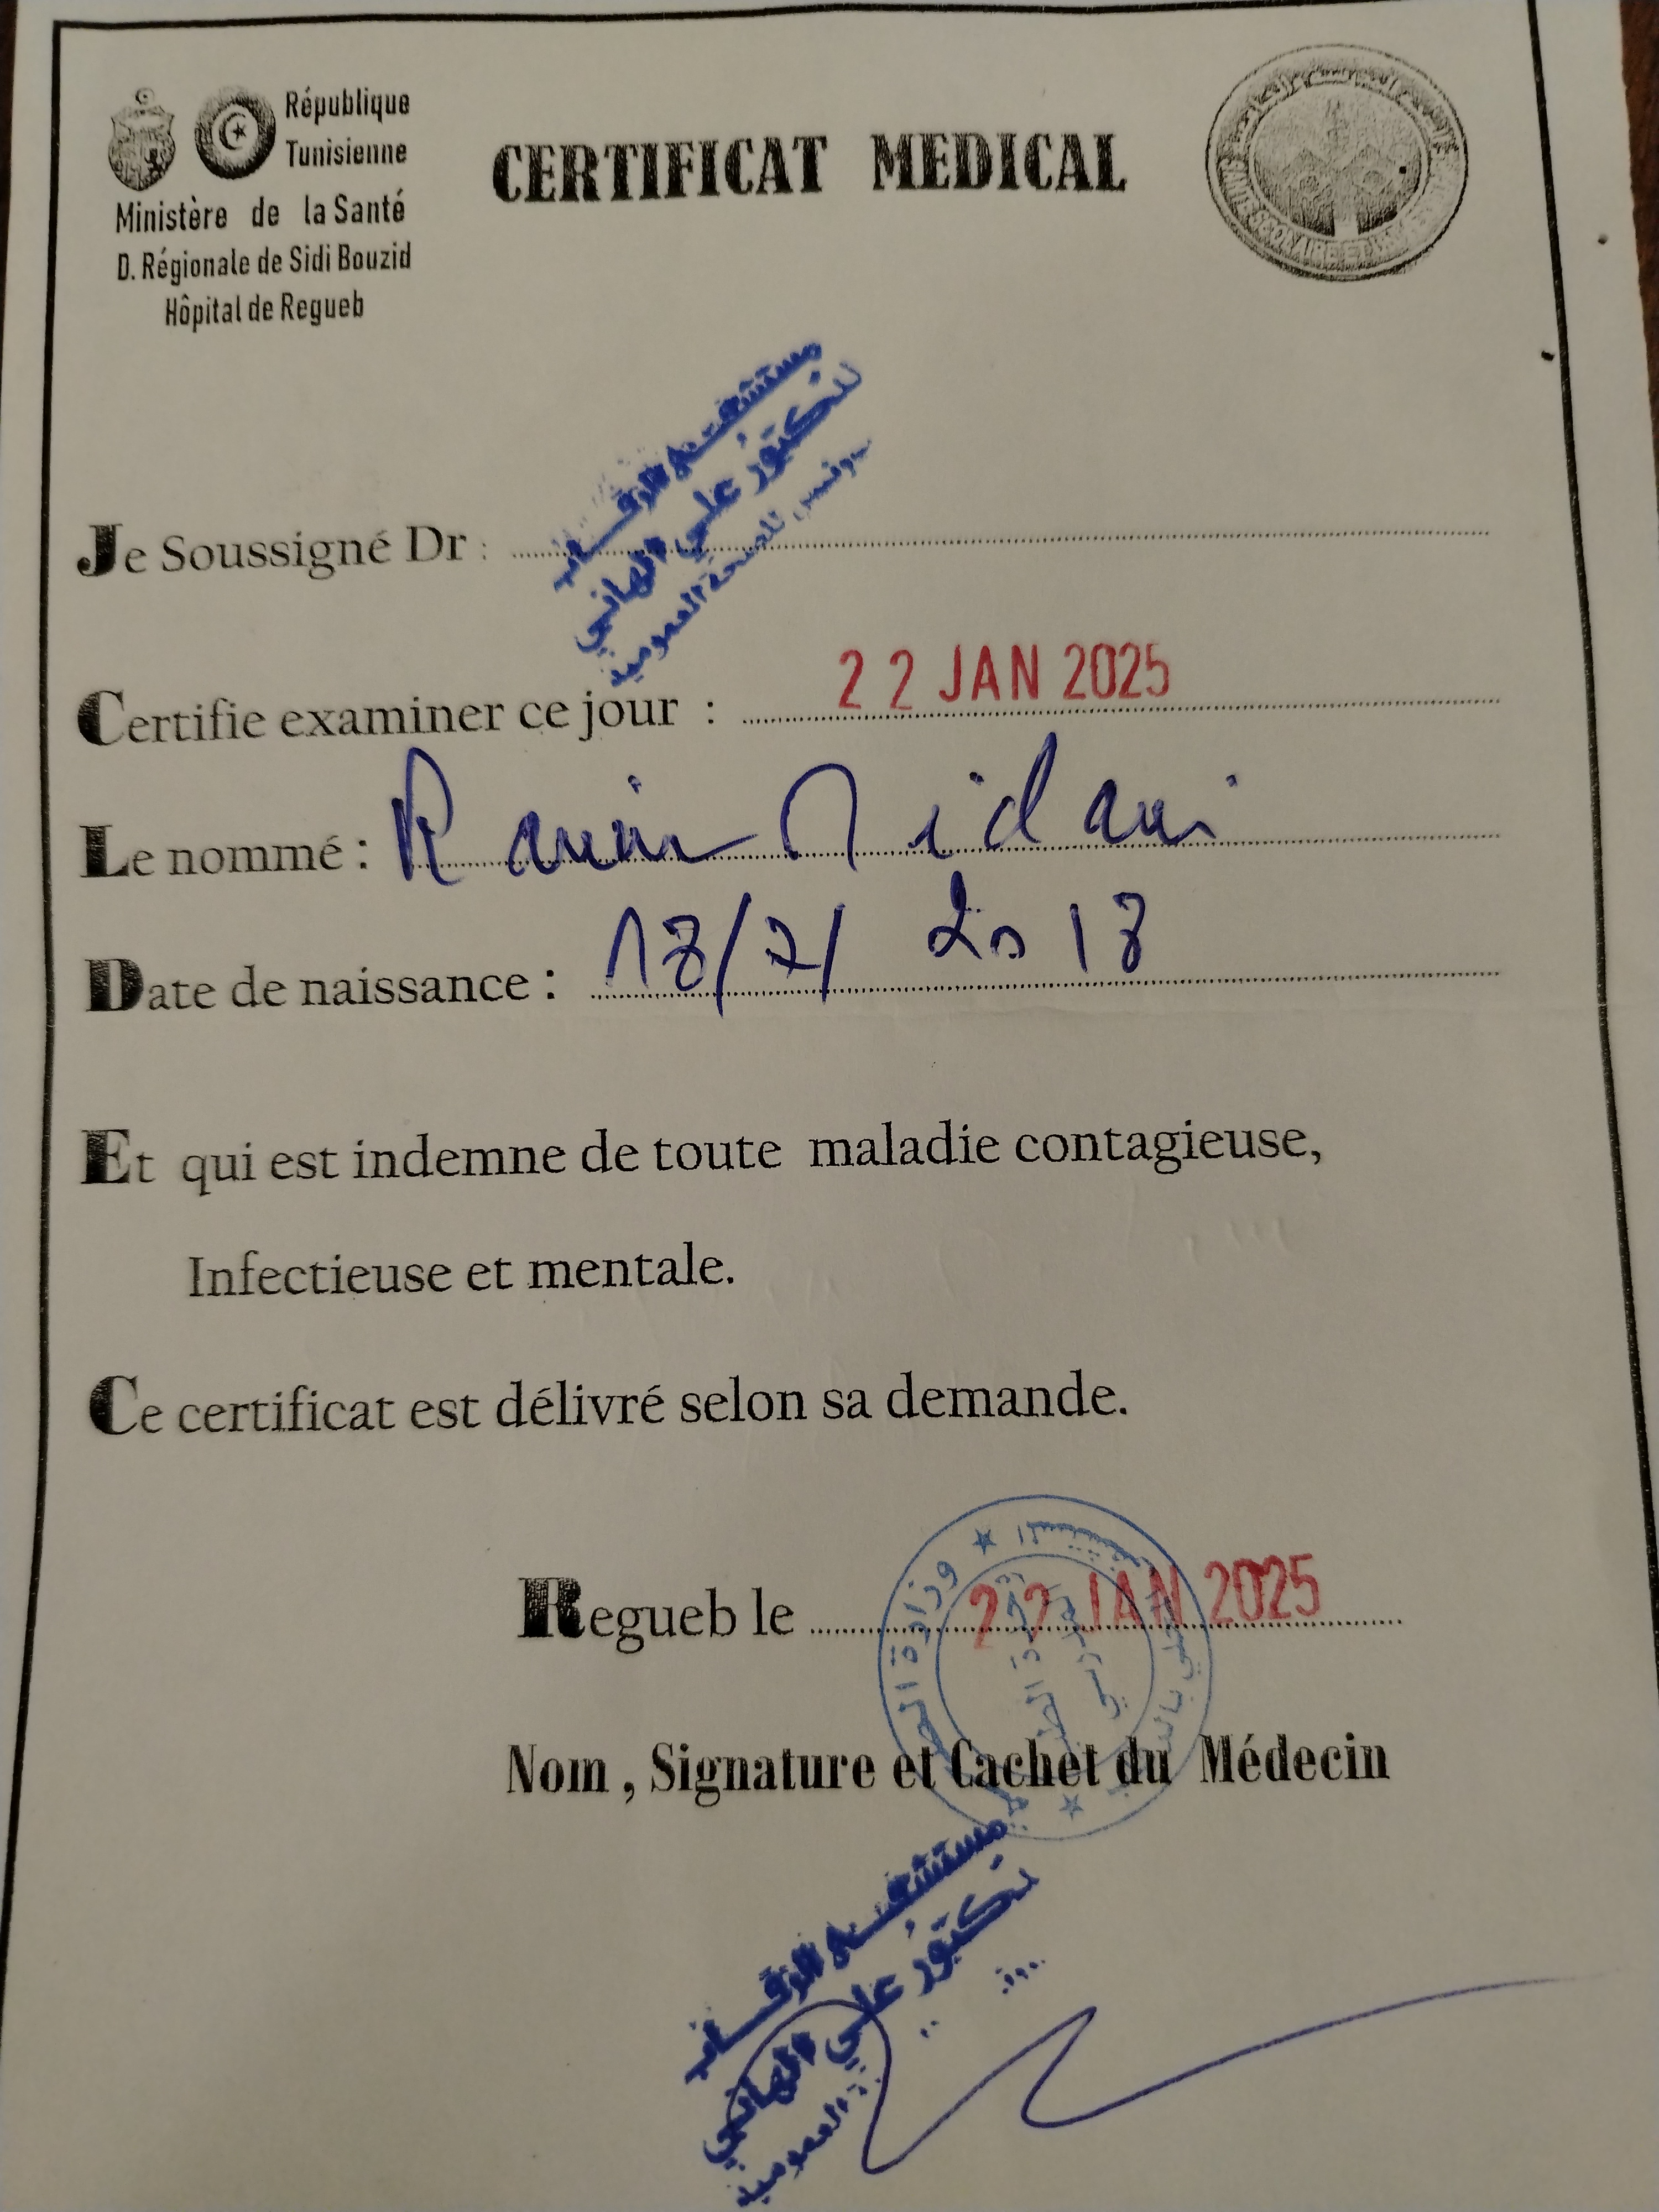 République
Tunisienne
Ministère de la Santé
D. Régionale de Sidi Bouzid
Hôpital de Regueb
CERTIFICAT MEDICAL
SCOLAIRE ET
Je Soussigné Dr :
مستشفى الرقاب
الدكتور علي الهاني
للصحة العمومية
Certifie examiner ce jour : 22 JAN 2025
Le nommé :
Date de naissance : 18/7/2018
Et qui est indemne de toute maladie contagieuse,
Infectieuse et mentale.
Ce certificat est délivré selon sa demande.
Regueb le 22 JAN 2025
وزارة الصحة
Nom , Signature et Cachet du Médecin
مستشفى الرقاب
الدكتور علي الهاني
العمومية